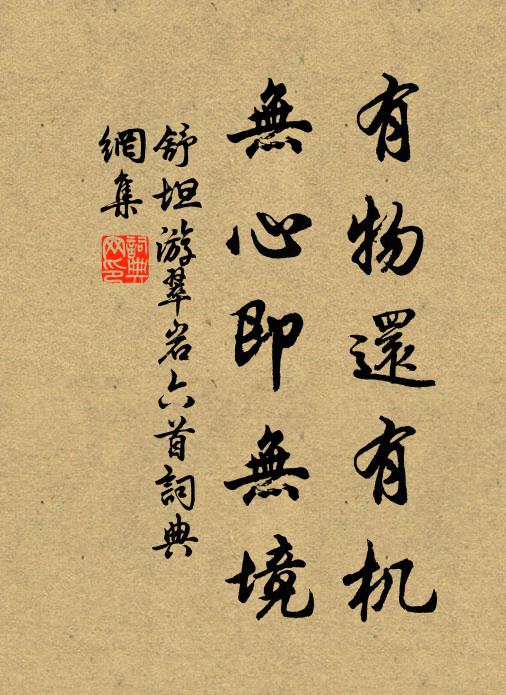 有物還有机
無心即無境
舒坦游翠岩六首詞典
網集
詞典
网印